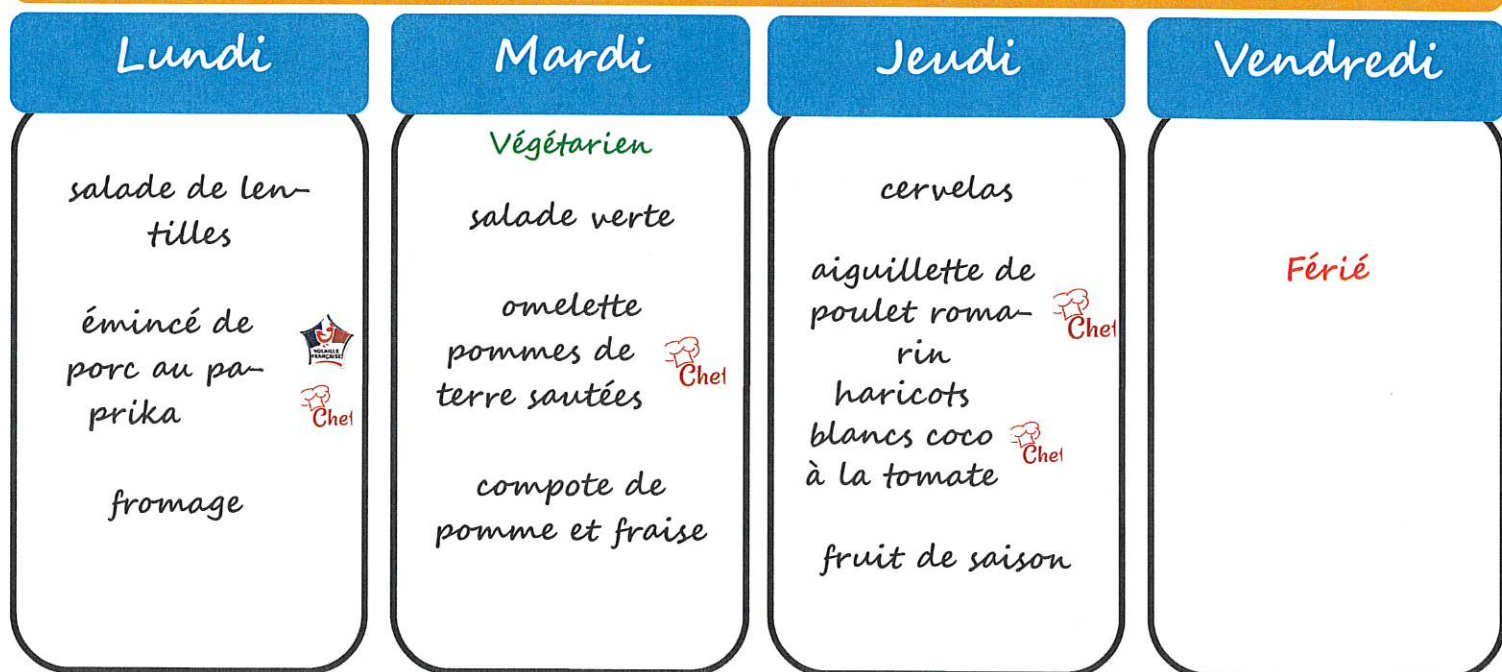 Lundi
salade de len-
tilles
émincé de
porc au pa-
prika
VOLAILLE
FRANÇAISE
Chef
fromage
Mardi
Végétarien
salade verte
omelette
pommes de
terre sautées
Chef
compote de
pomme et fraise
Jeudi
cervelas
aiguillette de
poulet roma-
rin
Chef
haricots
blancs coco
à la tomate
Chef
fruit de saison
Vendredi
Férié